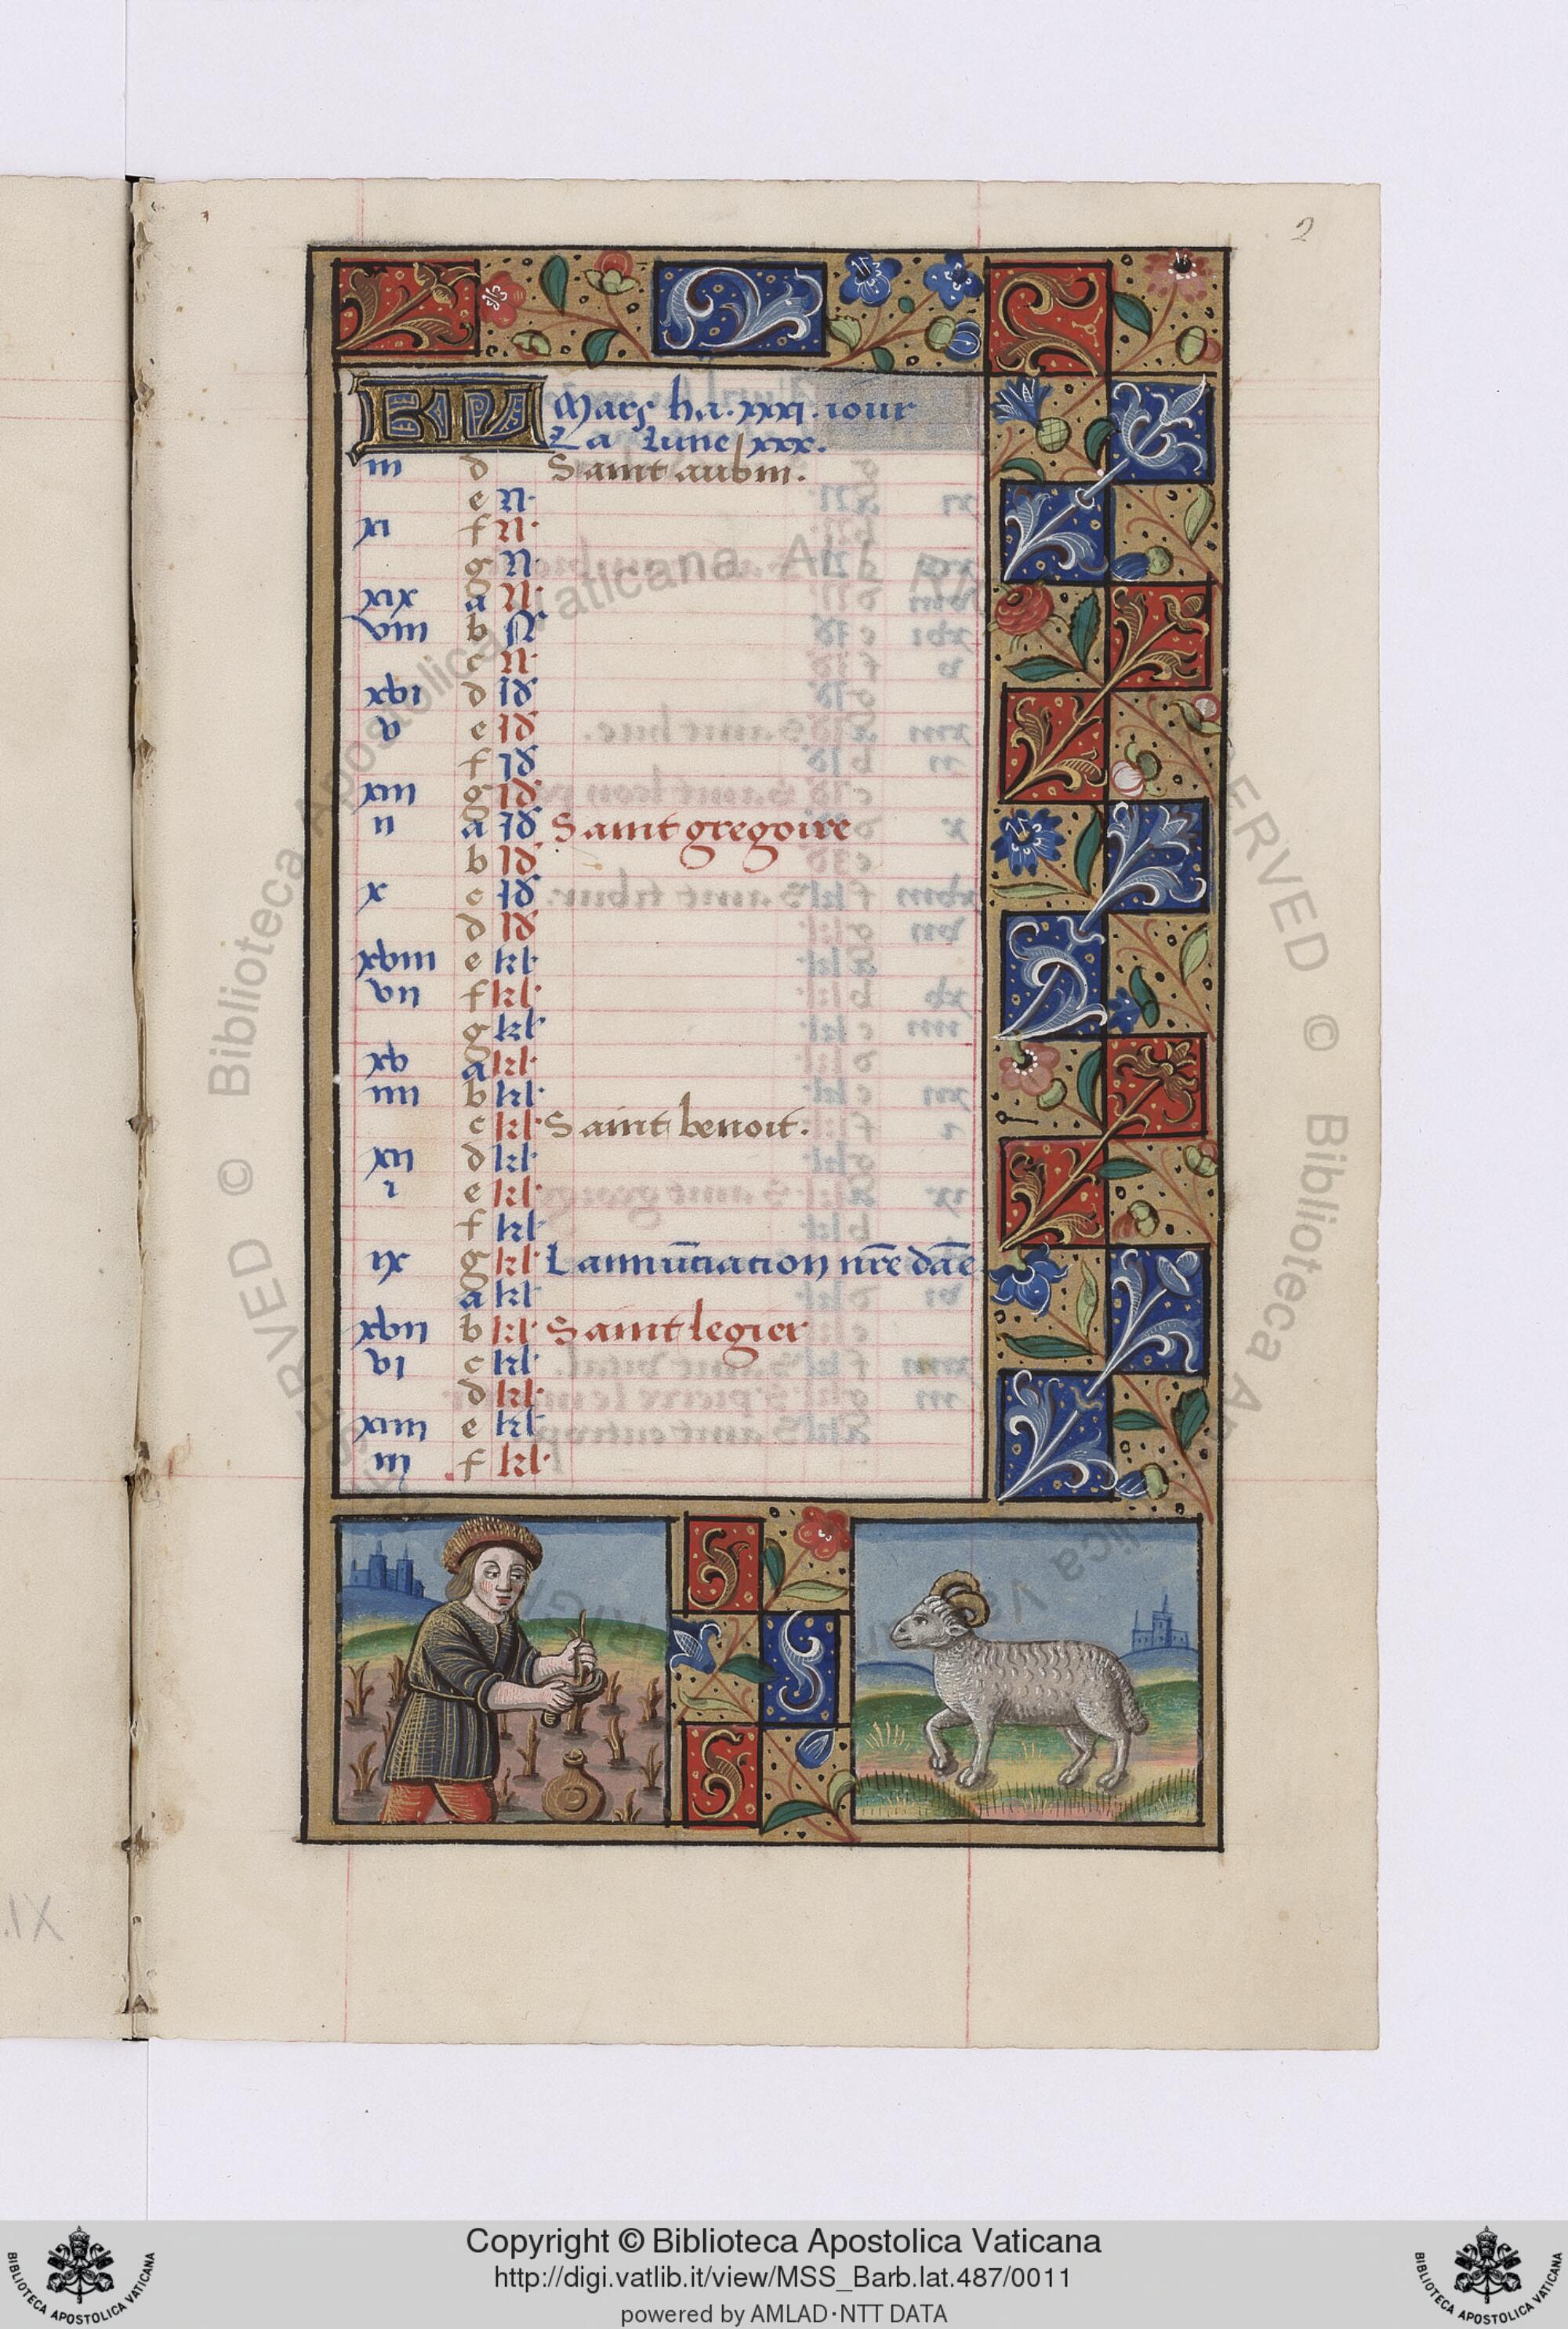 2
KL Mars ha .xxxi. iour
La lune xxx.
iii d Saint aubin.
e N.
xi f N.
g N.
xix a N.
viii b N
c N.
xvi d Id
v e Id
f Id
xiii g Id
ii a Id Saint gregoire
b Id
x c Id
d Id
xviii e kl
vii f kl.
g kl.
xv a kl.
iiii b kl.
c kl. Saint benoit.
xii d kl.
i e kl.
f kl.
ix g kl. Lannūciacion nr̄e dāe
a kl.
xvii b kl Saint legier
vi c kl.
d kl.
xiiii e kl.
iii f kl.
Copyright © Biblioteca Apostolica Vaticana
http://digi.vatlib.it/view/MSS_Barb.lat.487/0011
powered by AMLAD·NTT DATA
BIBLIOTECA APOSTOLICA VATICANA
BIBLIOTECA APOSTOLICA VATICANA